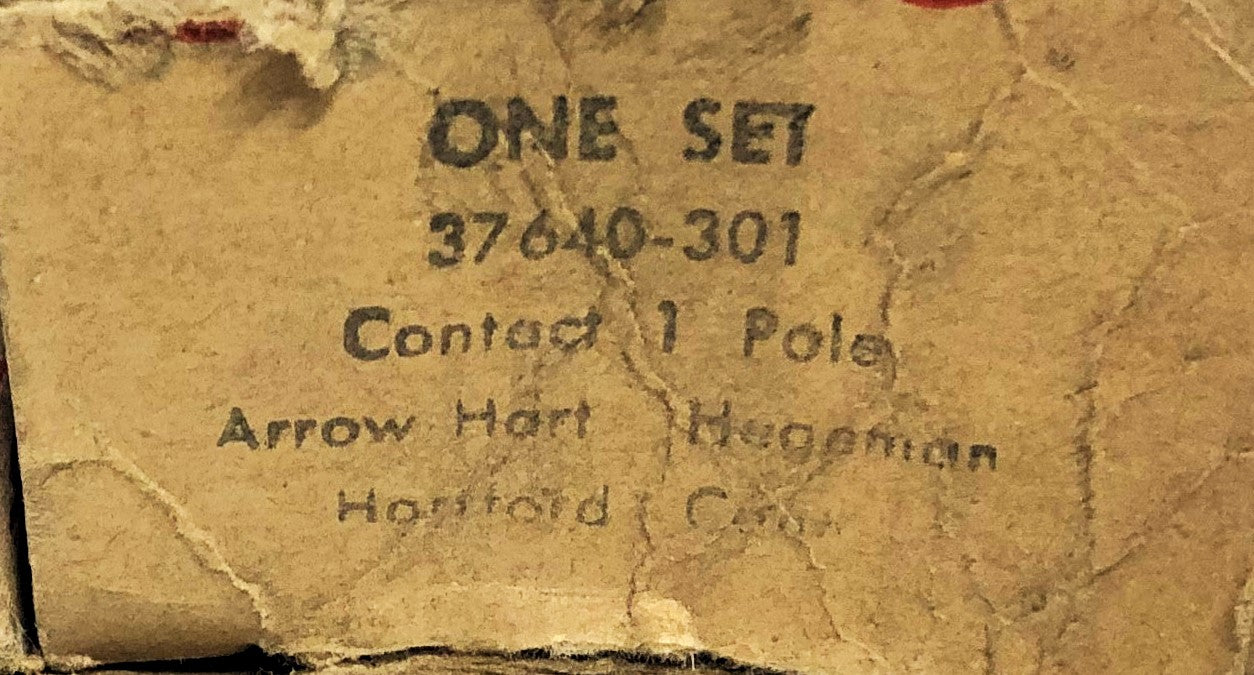 ONE SET
37640-301
Contact 1 Pole
Arrow Hart Hegeman
Hartford Conn